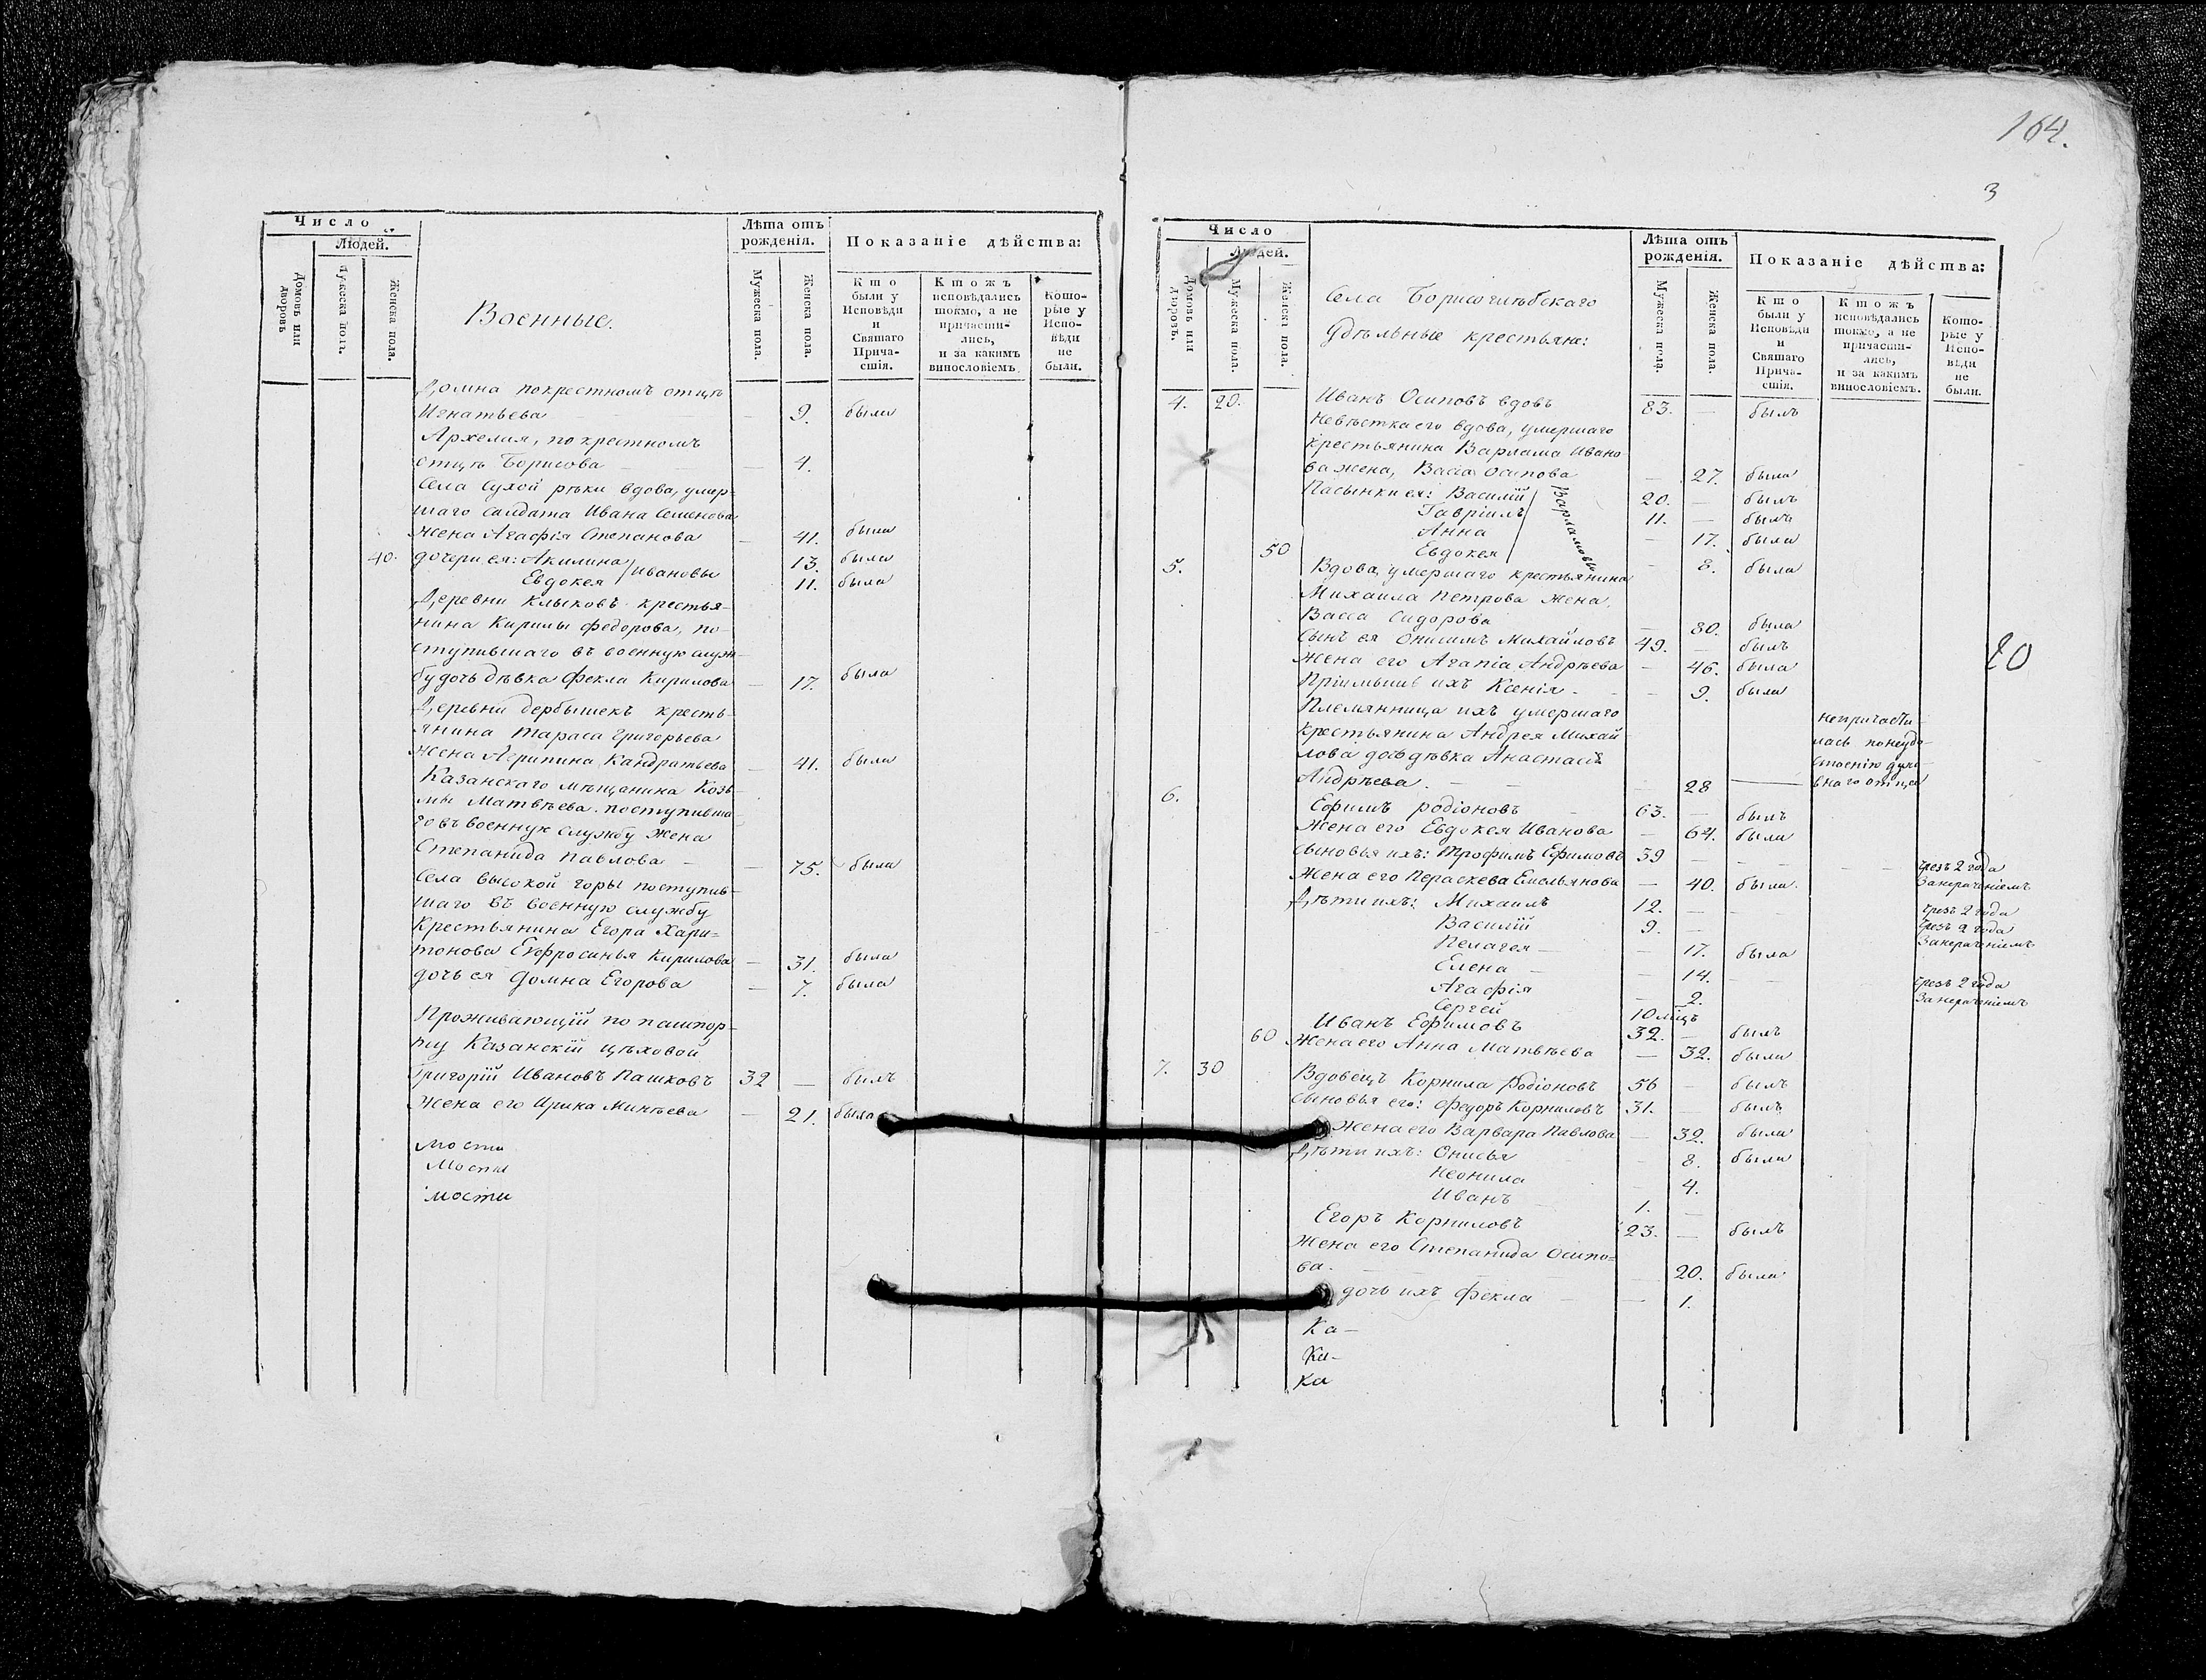 Число
Людей.
Домовъ или дворовъ
Мужеска полъ.
Женска пола.
Военные.
Лѣта отъ рожденія.
Мужеска пола.
Женска пола.
Показаніе дѣйства:
Кто были у Исповѣди и Святаго Причастія.
Ктожъ исповѣдались токмо, а не причастились, и за какимъ винословіемъ
Которые у Исповѣди не были.
Домна покрестномъ отцѣ
Игнатьева — 9. была
Архелия, по крестномъ
отцѣ Борисова — — 4.
Села Сухой рѣки вдова, умер-
шаго салдата Ивана Семенова
жена Агафія Степанова — 41. была
40. дочери ея: Акилина Ивановы 13. была
Евдокея 11. была
Деревни Клыковъ крестья-
нина Кирилы Федорова, по-
ступившаго въ военную служ-
бу дочь дѣвка Фекла Кирилова — 17. была
Деревни Дербышекъ кресть-
янина Тараса Григорьева
жена Агрипина Кандратьева — 41. была
Казанскаго мѣщанина Козь-
мы Матвѣева поступивша
го въ военную службу жена
Степанида Павлова — — 75. была
Села высокой горы поступив-
шаго въ военную службу
Крестьянина Егора Хари=
тонова Ефросинья Кирилова — 31. была
дочь ея Домна Егорова — 7. была
Проживающій по пашпор-
ту Казанскій цѣховой
Григорій Ивановъ Пашковъ 32 — былъ
жена его Ирина Минѣева — 21. была
мости
мости
мости
164.
3
Число
Людей.
Домовъ или дворовъ.
Мужеска пола.
Женска пола.
Села Борисоглѣбскаго
Удѣльные крестьяне:
Лѣта отъ рожденія.
Мужеска пола.
Женска пола.
Показаніе дѣйства:
Кто были у Исповѣди и Святаго Причастія.
Ктожъ исповѣдались токмо, а не причастились, и за какимъ винословіемъ.
Которые у Исповѣди не были.
4. 20. Иванъ Осиповъ вдовъ 83. — былъ
Невѣстка его вдова, умершаго
крестьянина Варлама Ивано
ва жена, Васса Осипова — 27. была
Пасынки ея: Василій Варламовы 20. — былъ
Гавріилъ 11. — былъ
Анна — 17. была
50 Евдокея — 8. была
5. Вдова, умершаго крестьянина
Михаила Петрова жена
Васса Сидорова — 80. была
Сынъ ея Онисимъ Михайловъ 49. — былъ
Жена его Агапіа Андрѣева — 46. была
Пріимышъ ихъ Ксенія — — 9. была
Племянница ихъ умершаго
крестьянина Андрея Михай
лова дочь дѣвка Анастасія
Андрѣева — — 28 —
непричасти
лась понеудо-
стоенію духо
внаго отца
6. Ефимъ Родіоновъ 63. — былъ
Жена его Евдокея Иванова — 64. была
Сыновья ихъ: Трофимъ Ефимовъ 39 — — — чрезъ 2 года
Жена его Параскева Емельянова — 40. была. Занераченіемъ
Дѣти ихъ: Михаилъ 12. — чрезъ 2 года
Василій 9. — чрезъ 2 года
Занераченіемъ
Пелагея — — 17. была
Елена — — 14. — чрезъ 2 года
Агафія — 2. Занераченіемъ
Сергей 10 мѣцъ
Иванъ Ефимовъ 32. — былъ
60 Жена его Анна Матвѣева — 32. была
7. 30 Вдовецъ Корнила Родіоновъ 56 — былъ
Сыновья его: Федоръ Корниловъ 31. — былъ
жена его Варвара Павлова — 32. была
Дѣти ихъ: Онисья — 8. была
Неонила — 4.
Иванъ 1. —
Егоръ Корниловъ 23. — былъ
Жена его Степанида Осипо=
ва. — 20. была
дочь ихъ Фекла — — 1.
Ка-
Ка-
Ка
20